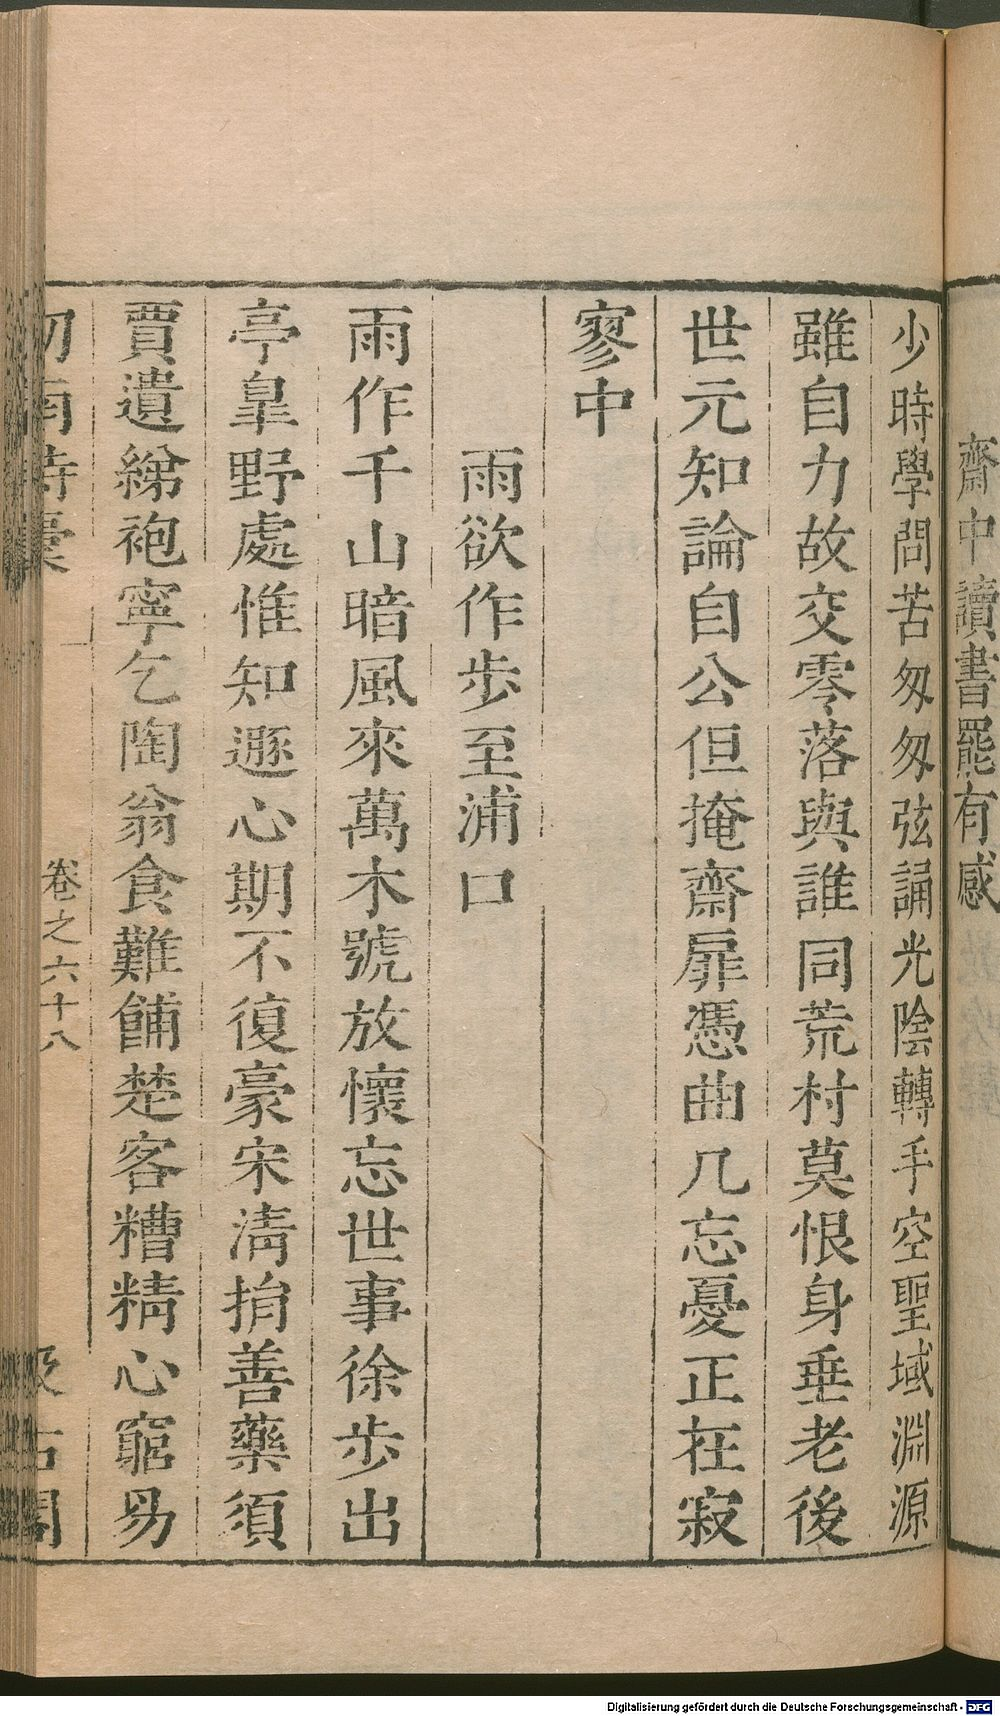 齋中讀書罷有感
少時學問苦匆匆弦誦光陰轉手空聖域淵源
雖自力故交零落與誰同荒村莫恨身垂老後
世元知論自公但掩齋扉憑曲几忘憂正在寂
寥中
雨欲作步至浦口
雨作千山暗風來萬木號放懷忘世事徐步出
亭皐野處惟知遯心期不復豪宋淸捐善藥須
賈遺綈袍寧乞陶翁食難餔楚客糟精心窮易
劒南詩稾 卷之六十八 汲古閣
Digitalisierung gefördert durch die Deutsche Forschungsgemeinschaft - DFG